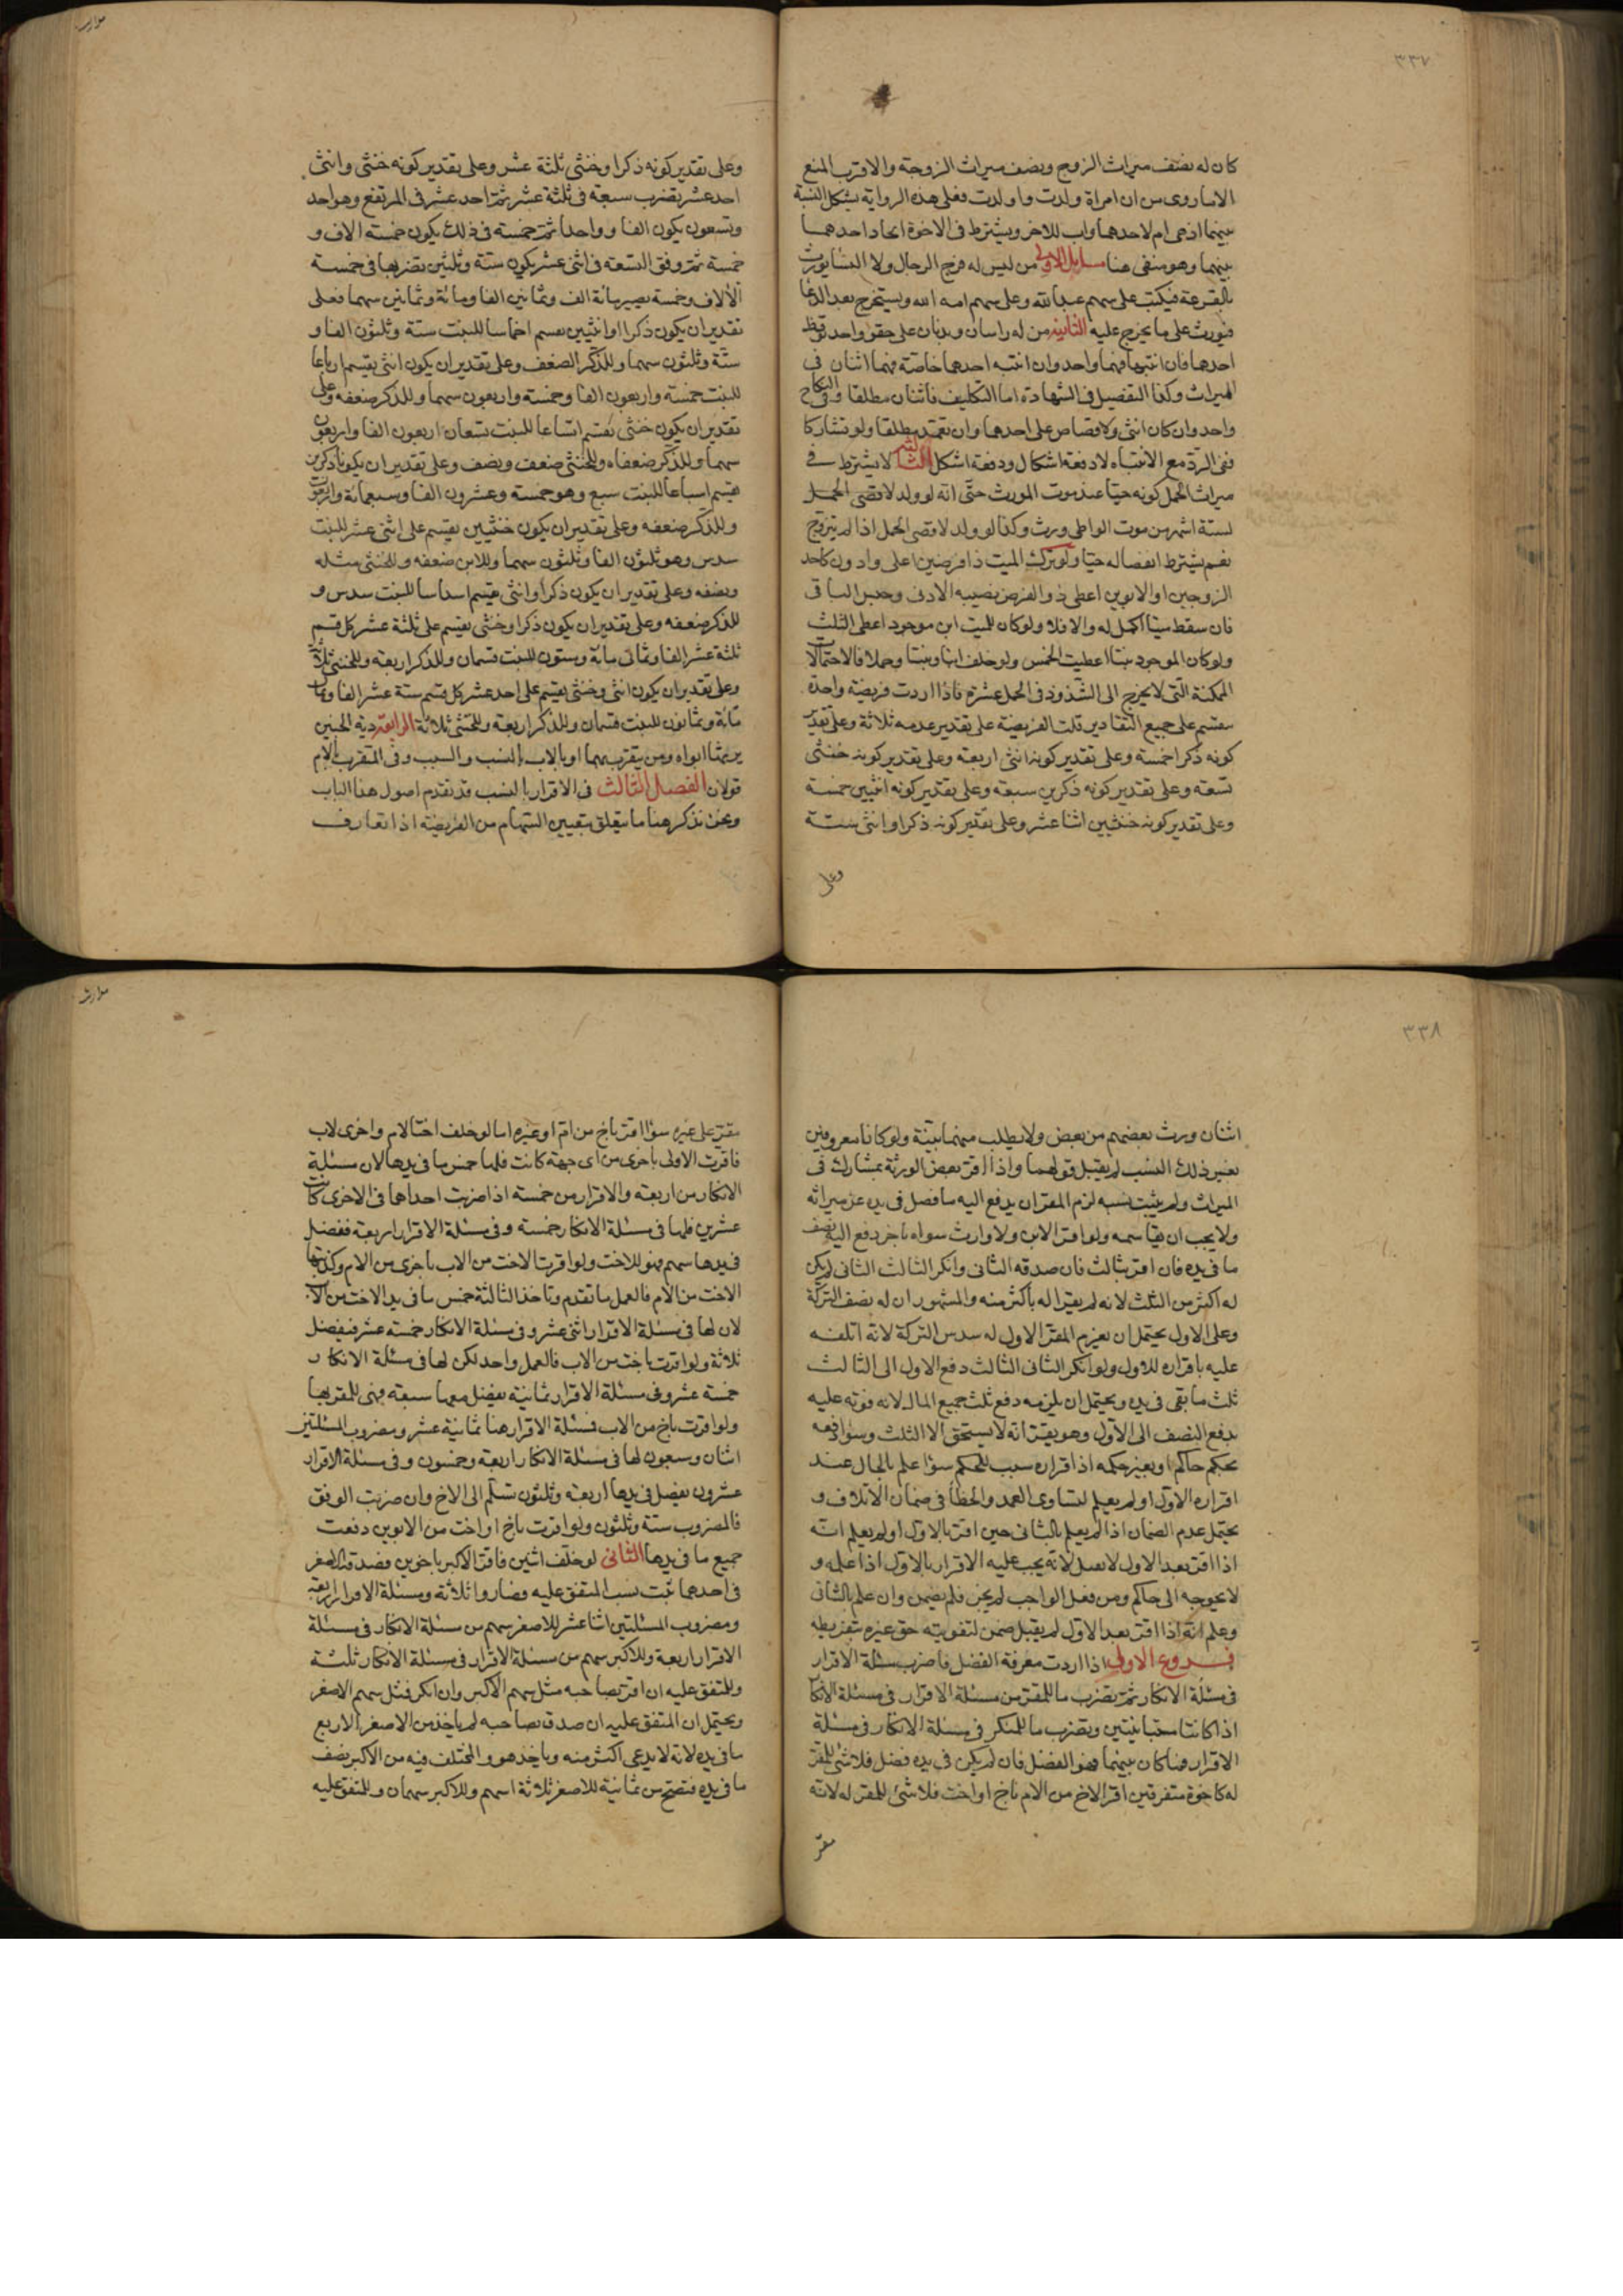 ٣٣٧
كان له نصف ميراث الزوج ونصف ميراث الزوجة والاقرب المنع
الا ما روى من ان امراة ولدت واولدت فعلى هذه الرواية يشكل النسبة
بينهما اذ هى ام لاحدهما واب للاخر ويشترط فى الاخوة اتحاد احدهما
بينهما وهو منفى هنا مسايل الاولى من ليس له فرج الرجال ولا النسا يورث
بالقرعة فيكتب على سهم عبدالله وعلى سهم امة الله ويستخرج بعد الدعا
فيورث على ما يخرج عليه الثانية من له راسان وبدنان على حقو واحد يوقظ
احدهما فان انتبها فهما واحد وان انتبه احدهما خاصة فهما اثنان فى
الميراث وكذا التفصيل فى الشهادة اما التكليف فاثنان مطلقا وفى النكاح
واحد وان كان انثى ولا قصاص على احدهما وان تعمد مطلقا ولو تشاركا
ففى الرد مع الانتباه لا دفعة اشكال ودفعة اشكل الثالثة لا يشترط فى
ميراث الحمل كونه حيا عند موت المورث حتى انه لو ولد لاقصى الحمل
لستة اشهر من موت الواطى ورث وكذا لو ولد لاقصى الحمل اذا لم يتزوج
نعم يشترط انفصاله حيا ولو ترك الميت ذا فرضين اعلى وادون كاحد
الزوجين او الابوين اعطى ذو الفرض نصيبه الادنى وحبس الباقى
فان سقط ميتا اكمل له والا فلا ولو كان للميت ابن موجود اعطى الثلث
ولو كان الموجود بنتا اعطيت الخمس ولو خلف ابنا وبنتا وحملا فالاحتمالات
الممكنة التى لا يخرج الى الشذوذ فى الحمل عشرة فاذا اردت فريضة واحدة
منقسم على جميع التقادير قلت الفريضة على تقدير عدمه ثلاثة وعلى تقدير
كونه ذكرا خمسة وعلى تقدير كونه انثى اربعة وعلى تقدير كونه خنثى
تسعة وعلى تقدير كونه ذكرين سبعة وعلى تقدير كونه انثيين خمسة
وعلى تقدير كونه خنثيين اثنا عشر وعلى تقدير كونه ذكرا وانثى ستة
وعلى
وعلى تقدير كونه ذكرا وخنثى ثلثة عشر وعلى تقدير كونه خنثى وانثى
احد عشر يضرب سبعة فى ثلثة عشر ثم احد عشر فى المرتفع وهو احد
وتسعون يكون الفا وواحدا ثم خمسة فى ذلك يكون خمسة الاف و
خمسة ثم وفق التسعة فى اثنى عشر يكون ستة وثلثين تضربها فى خمسة
الالاف وخمسة يصير مائة الف وثمانين الفا ومائة وثمانين سهما فعلى
تقدير ان يكون ذكرا او انثيين يقسم اخماسا للبنت ستة وثلثون الفا و
ستة وثلثون سهما وللذكر الضعف وعلى تقدير ان يكون انثى يقسم ارباعا
للبنت خمسة واربعون الفا وخمسة واربعون سهما وللذكر ضعفه وعلى
تقدير ان يكون خنثى يقسم اتساعا للبنت تسعان اربعون الفا واربعون
سهما وللذكر ضعفاه وللخنثى ضعف ونصف وعلى تقدير ان يكونا ذكرين
يقسم اسباعا للبنت سبع وهو خمسة وعشرون الفا وسبعمائة واربعون
وللذكر ضعفه وعلى تقدير ان يكون خنثيين يقسم على اثنى عشر للبنت
سدس وهو ثلثون الفا وثلثون سهما وللابن ضعفه وللخنثى مثله
ونصفه وعلى تقدير ان يكون ذكرا وانثى يقسم اسداسا للبنت سدس و
للذكر ضعفه وعلى تقدير ان يكون ذكرا وخنثى يقسم على ثلثة عشر كل قسم
ثلثة عشر الفا وثمانى مائة وستون للبنت قسمان وللذكر اربعة وللخنثى ثلاثة
وعلى تقدير ان يكون انثى وخنثى يقسم على احد عشر كل قسم ستة عشر الفا وثلث
مائة وثمانون للبنت قسمان وللذكر اربعة وللخنثى ثلاثة الرابعة دية الجنين
يرثها ابواه ومن يتقرب بهما او بالاب بالنسب والسبب وفى المتقرب بالام
قولان الفصل الثالث فى الاقرار بالنسب قد تقدم اصول هذا الباب
ونحن نذكر هنا ما يتعلق بتعيين السهام من الفريضة اذا تعارف
٣٣٨
اثنان ورث بعضهم من بعض ولا يطلب منهما بينة ولو كانا معروفين
بغير ذلك النسب لم يقبل قولهما واذا اقر بعض الورثة بمشارك فى
الميراث ولم يثبت نسبه لزم المقر ان يدفع اليه ما فضل فى يده عن ميراثه
ولا يجب ان يقاسمه ولو اقر الابن ولا وارث سواه باخر دفع اليه نصف
ما فى يده فان اقر بثالث فان صدقه الثانى وانكر الثالث الثانى لم يكن
له اكثر من الثلث لانه لم يقر له باكثر منه والمشهور ان له نصف التركة
وعلى الاول يحتمل ان يغرم المقر الاول له سدس التركة لانه اتلفه
عليه باقراره للاول ولو انكر الثانى الثالث دفع الاول الى الثالث
ثلث ما بقى فى يده ويحتمل ان يلزمه دفع ثلث جميع المال لانه فوته عليه
بدفع النصف الى الاول وهو يقر انه لا يستحق الا الثلث وسوا دفعه
بحكم حاكم او بغير حكمه اذ اقراره سبب للحكم سوا علم بالحال عند
اقراره الاول او لم يعلم لتساوى العمد والخطا فى ضمان الاتلاف و
يحتمل عدم الضمان اذا لم يعلم بالثانى حين اقر بالاول او لم يعلم انه
اذا اقر بعد الاول لا يقبل لانه يجب عليه الاقرار بالاول اذا علمه و
لا يحوجه الى حاكم ومن فعل الواجب لم يخن فلم يضمن وان علم بالثانى
وعلم انه اذا اقر بعد الاول لم يقبل ضمن لتفويته حق غيره بتفريطه
فروع الاول اذا اردت معرفة الفضل فاضرب مسئلة الاقرار
فى مسئلة الانكار ثم تضرب ما للمقر من مسئلة الاقرار فى مسئلة الانكار
اذا كانتا متباينتين وتضرب ما للمنكر فى مسئلة الانكار فى مسئلة
الاقرار فما كان بينهما فهو الفضل فان لم يكن فى يده فضل فلا شئ للمقر
له كاخوة متفرقين اقر الاخ من الام باخ او اخت فلا شئ للمقر له لانه
مقر
مقر على غيره سوا اقر باخ من ام او غيره اما لو خلف اختا لام واخرى لاب
فاقرت الاولى باخرى من اى جهة كانت فلها خمس ما فى يدها لان مسئلة
الانكار من اربعة والاقرار من خمسة اذا ضربت احداهما فى الاخرى كانت
عشرين فلها فى مسئلة الانكار خمسة وفى مسئلة الاقرار اربعة ففضل
فى يدها سهم فهو للاخت ولو اقرت الاخت من الاب باخرى من الام وكذبتها
الاخت من الام فالعمل ما تقدم وتاخذ الثالثة خمس ما فى يد الاخت من الاب
لان لها فى مسئلة الاقرار اثنى عشر وفى مسئلة الانكار خمسة عشر فيفضل
ثلاثة ولو اقرت باخت من الاب فالعمل واحد لكن لها فى مسئلة الانكار
خمسة عشر وفى مسئلة الاقرار ثمانية يفضل معها سبعة فهى للمقر بها
ولو اقرت باخ من الاب فمسئلة الاقرار هنا ثمانية عشر ومضروب المسئلتين
اثنان وسبعون لها فى مسئلة الانكار اربعة وخمسون وفى مسئلة الاقرار
عشرون يفضل فى يدها اربعة وثلثون تسلم الى الاخ وان ضربت الوفق
فالمضروب ستة وثلثون ولو اقرت باخ او اخت من الابوين دفعت
جميع ما فى يدها الثانى لو خلف اثنين فاقر الاكبر باخوين فصدقه الاصغر
فى احدهما ثبت نسب المتفق عليه فصاروا ثلاثة ومسئلة الاقرار اربعة
ومضروب المسئلتين اثنا عشر للاصغر سهم من مسئلة الانكار فى مسئلة
الاقرار اربعة وللاكبر سهم من مسئلة الاقرار فى مسئلة الانكار ثلثة
وللمتفق عليه ان اقر بصاحبه مثل سهم الاكبر وان انكر فمثل سهم الاصغر
ويحتمل ان المتفق عليه ان صدق بصاحبه لم ياخذ من الاصغر الا ربع
ما فى يده لانه لا يدعى اكثر منه وياخذ هو والمختلف فيه من الاكبر نصف
ما فى يده فتصح من ثمانية للاصغر ثلاثة اسهم وللاكبر سهمان وللمتفق عليه